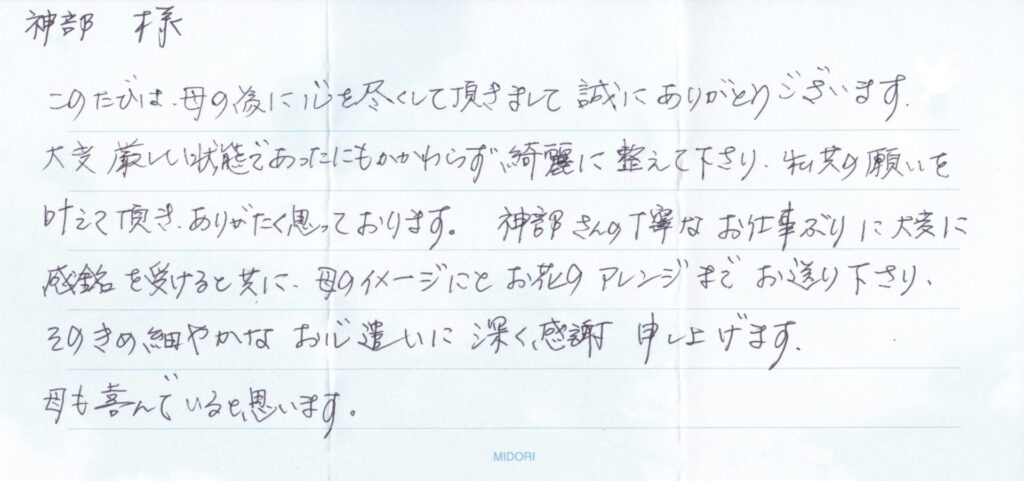 神部 様
このたびは、母の後に心を尽くして頂きまして 誠に ありがとうございます.
大変 厳しい状態であったにもかかわらず、綺麗に 整えて下さり、私共の願いを
叶えて頂き、ありがたく思っております。 神部さんの丁寧な お仕事ぶりに大変に
感銘を受けると共に、母のイメージにと お花の アレンジまで お送り下さり、
そのきめ細やかな お心遣いに 深く感謝 申し上げます.
母も喜んでいると思います。
MIDORI